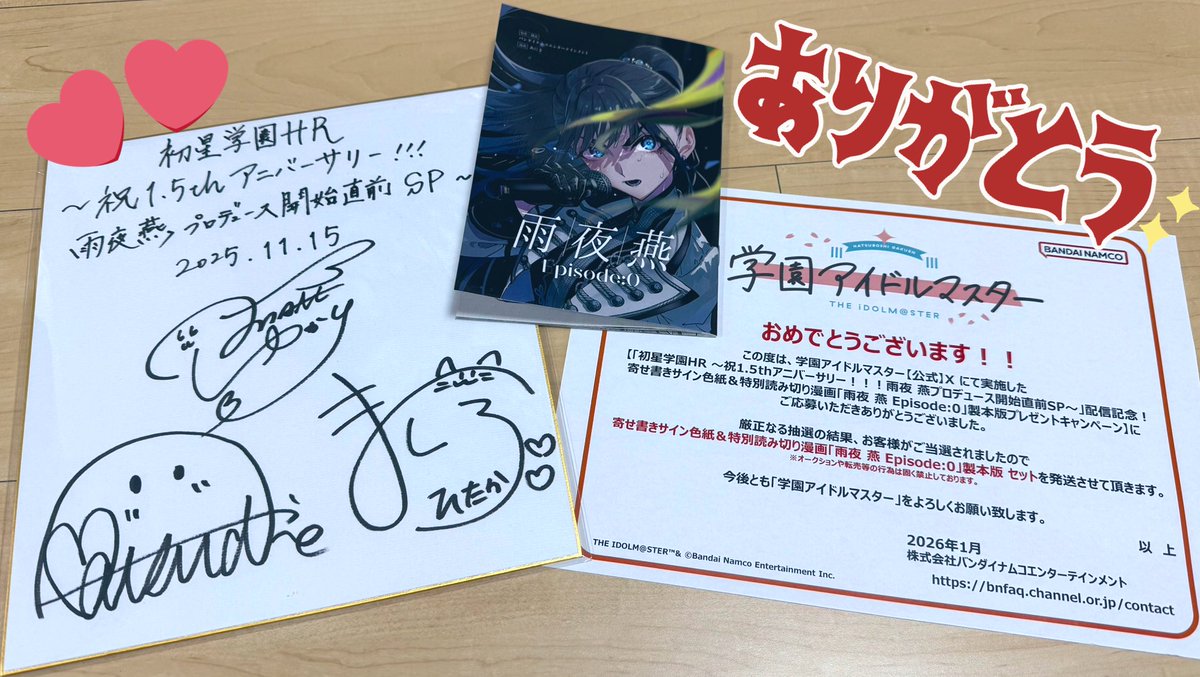 初星学園HR
～祝1.5thアニバーサリー!!!
雨夜燕プロデュース開始直前SP～
2025.11.15
ましろ
ひたか
雨夜 燕
Episode:0
ありがとう
HATSUBOSHI GAKUEN
BANDAI NAMCO
学園アイドルマスター
THE iDOLM@STER
おめでとうございます！！
この度は、学園アイドルマスター【公式】X にて実施した
【「初星学園HR ～祝1.5thアニバーサリー！！！雨夜 燕プロデュース開始直前SP～」配信記念！
寄せ書きサイン色紙＆特別読み切り漫画「雨夜 燕 Episode:0」製本版プレゼントキャンペーン】に
ご応募いただきありがとうございました。
厳正なる抽選の結果、お客様がご当選されましたので
寄せ書きサイン色紙＆特別読み切り漫画「雨夜 燕 Episode:0」製本版 セットを発送させて頂きます。
※オークションや転売等の行為は固く禁止しております。
今後とも「学園アイドルマスター」をよろしくお願い致します。
以 上
2026年1月
株式会社バンダイナムコエンターテインメント
https://bnfaq.channel.or.jp/contact
THE IDOLM@STER™& ©Bandai Namco Entertainment Inc.